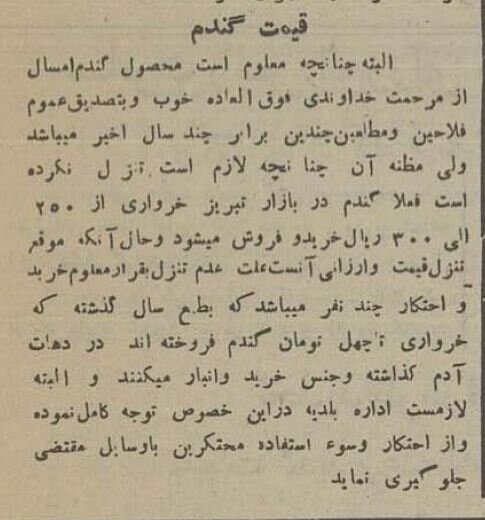 قیمت گندم
البته چنانچه معلوم است محصول گندم امسال
از مرحمت خداوندی فوق العاده خوب وبتصدیق عموم
فلاحین ومطلعین چندین برابر چند سال اخیر میباشد
ولی مظنه آن چنا نچه لازم است تنزل نکرده
است فعلا گندم در بازار تبریز خرواری از ۲۵۰
الی ۳۰۰ ریال خریدو فروش میشود وحال آنکه موقع
تنزل قیمت وارزانی آنست علت عدم تنزل بقرار معلوم خرید
و احتکار چند نفر میباشد که بطمع سال گذشته که
خرواری تا چهل تومان گندم فروخته اند در دهات
آدم گذاشته وجنس خرید وانبار میکنند و البته
لازمست اداره بلدیه دراین خصوص توجه کامل نموده
واز احتکار وسوء استفاده محتکرین باوسایل مقتضی
جلو گیری نماید